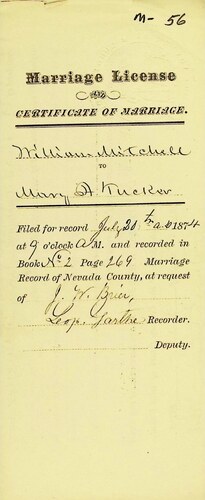 M- 56
Marriage License
CERTIFICATE OF MARRIAGE.
William Mitchell
TO
Mary A Tucker
Filed for record July 20th a.d 1874
at 9 o'clock A M. and recorded in
Book No 2 Page 269 Marriage
Record of Nevada County, at request
of J. W. Brier,
Leop. Garthe Recorder.
Deputy.